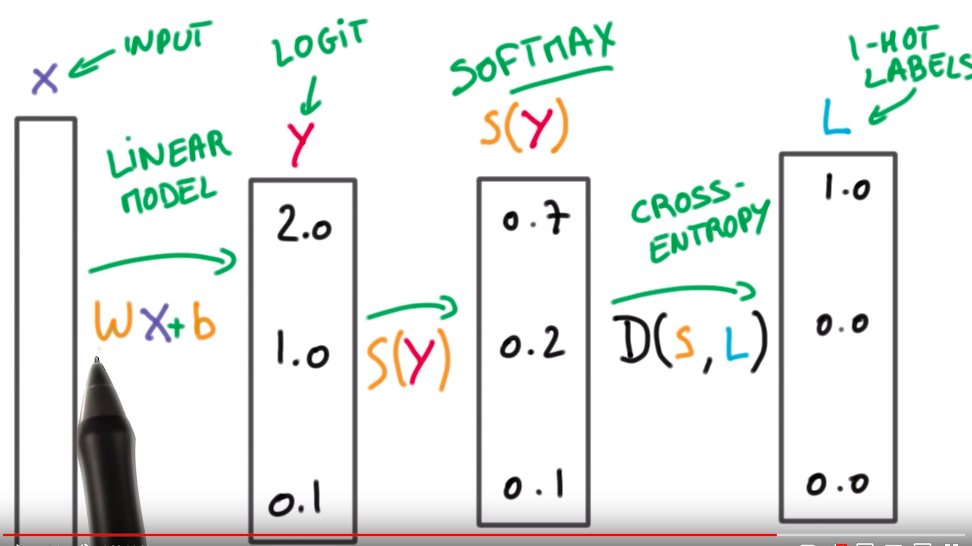 INPUT
X
LINEAR
MODEL
WX+b
LOGIT
Y
2.0
1.0
0.1
S(Y)
SOFTMAX
S(Y)
0.7
0.2
0.1
CROSS-
ENTROPY
D(S, L)
1-HOT
LABELS
L
1.0
0.0
0.0